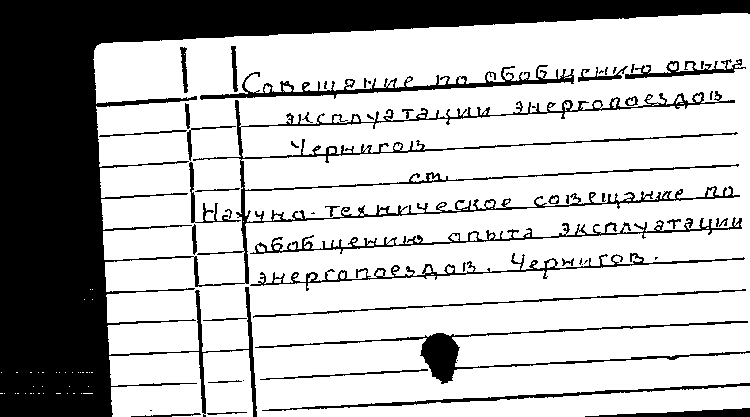 Совещание по обобщению опыта
эксплуатации энергопоездов
Чернигов
см.
Научно-техническое совещание по
обобщению опыта эксплуатации
энергопоездов. Чернигов.